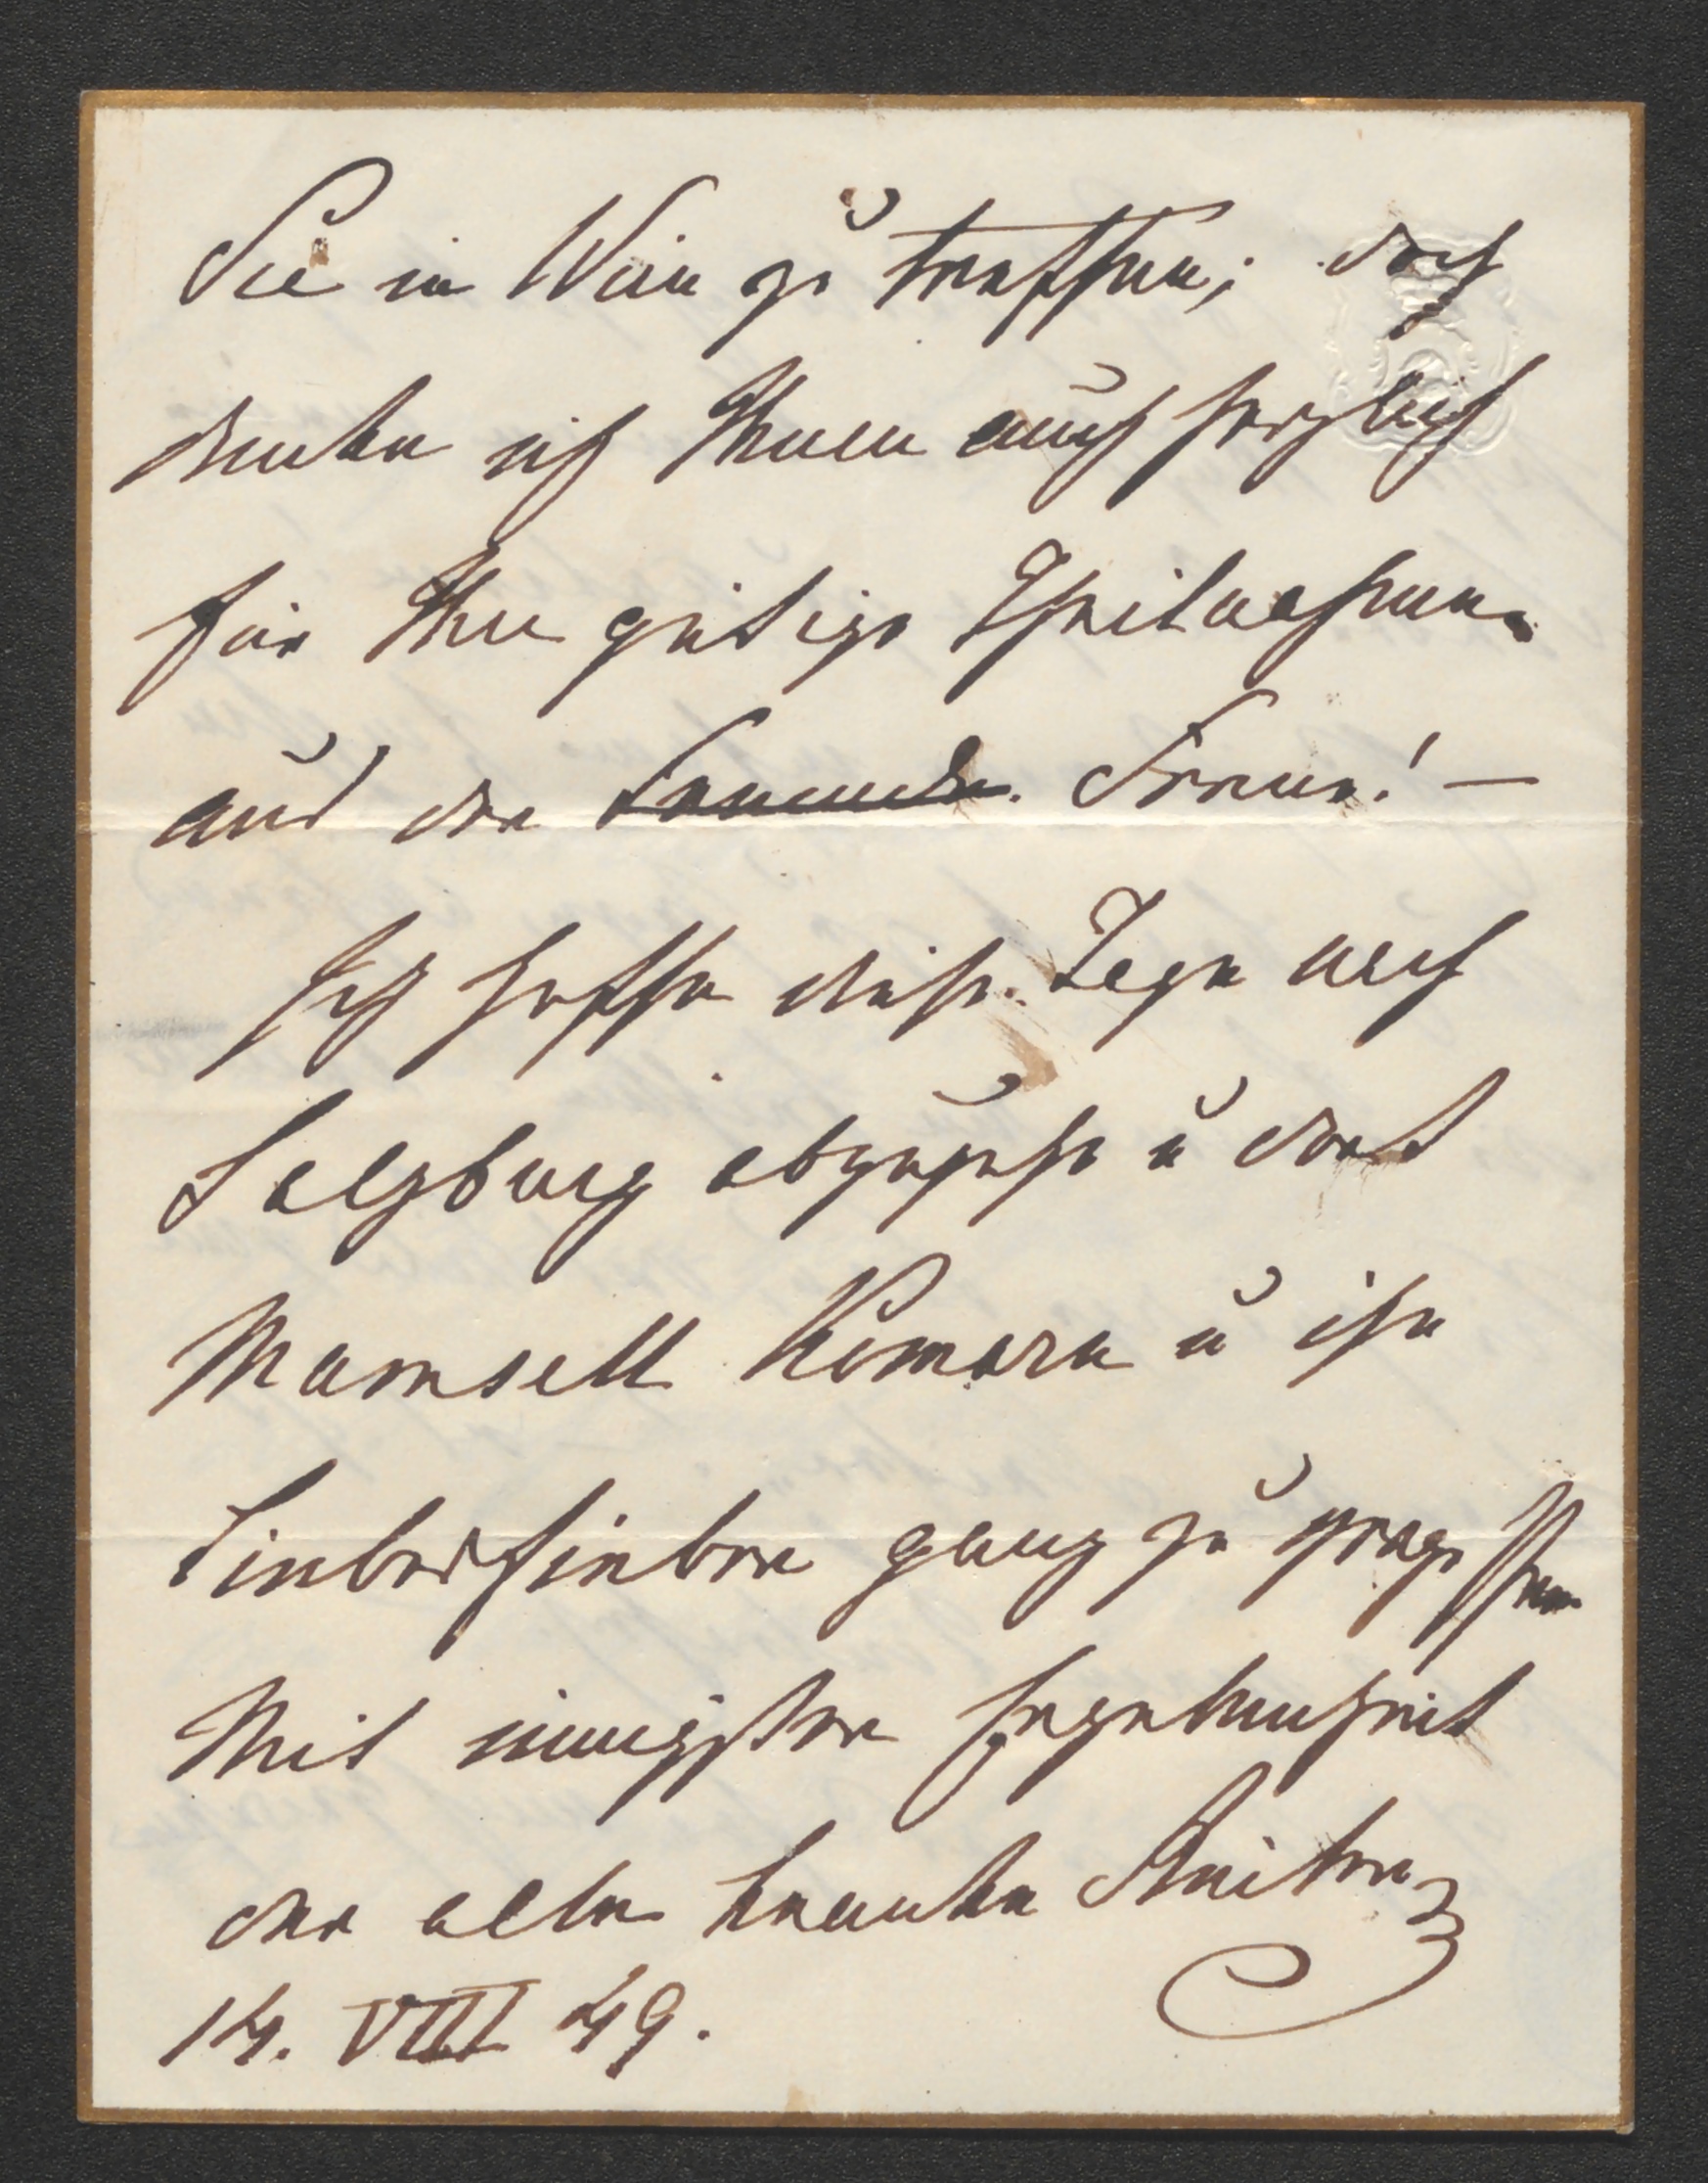 Sie in Wien zu treffen; doch
danke ich Ihnen auch herzlich
für Ihre gütige Theilnahme
aus der Ferne! —
Ich hoffe diese Tage nach
Salzburg u dort
Mamsell u ihre
ganz zu
Mit innigster Ergebenheit
der alte kranke
14. VIII 49.